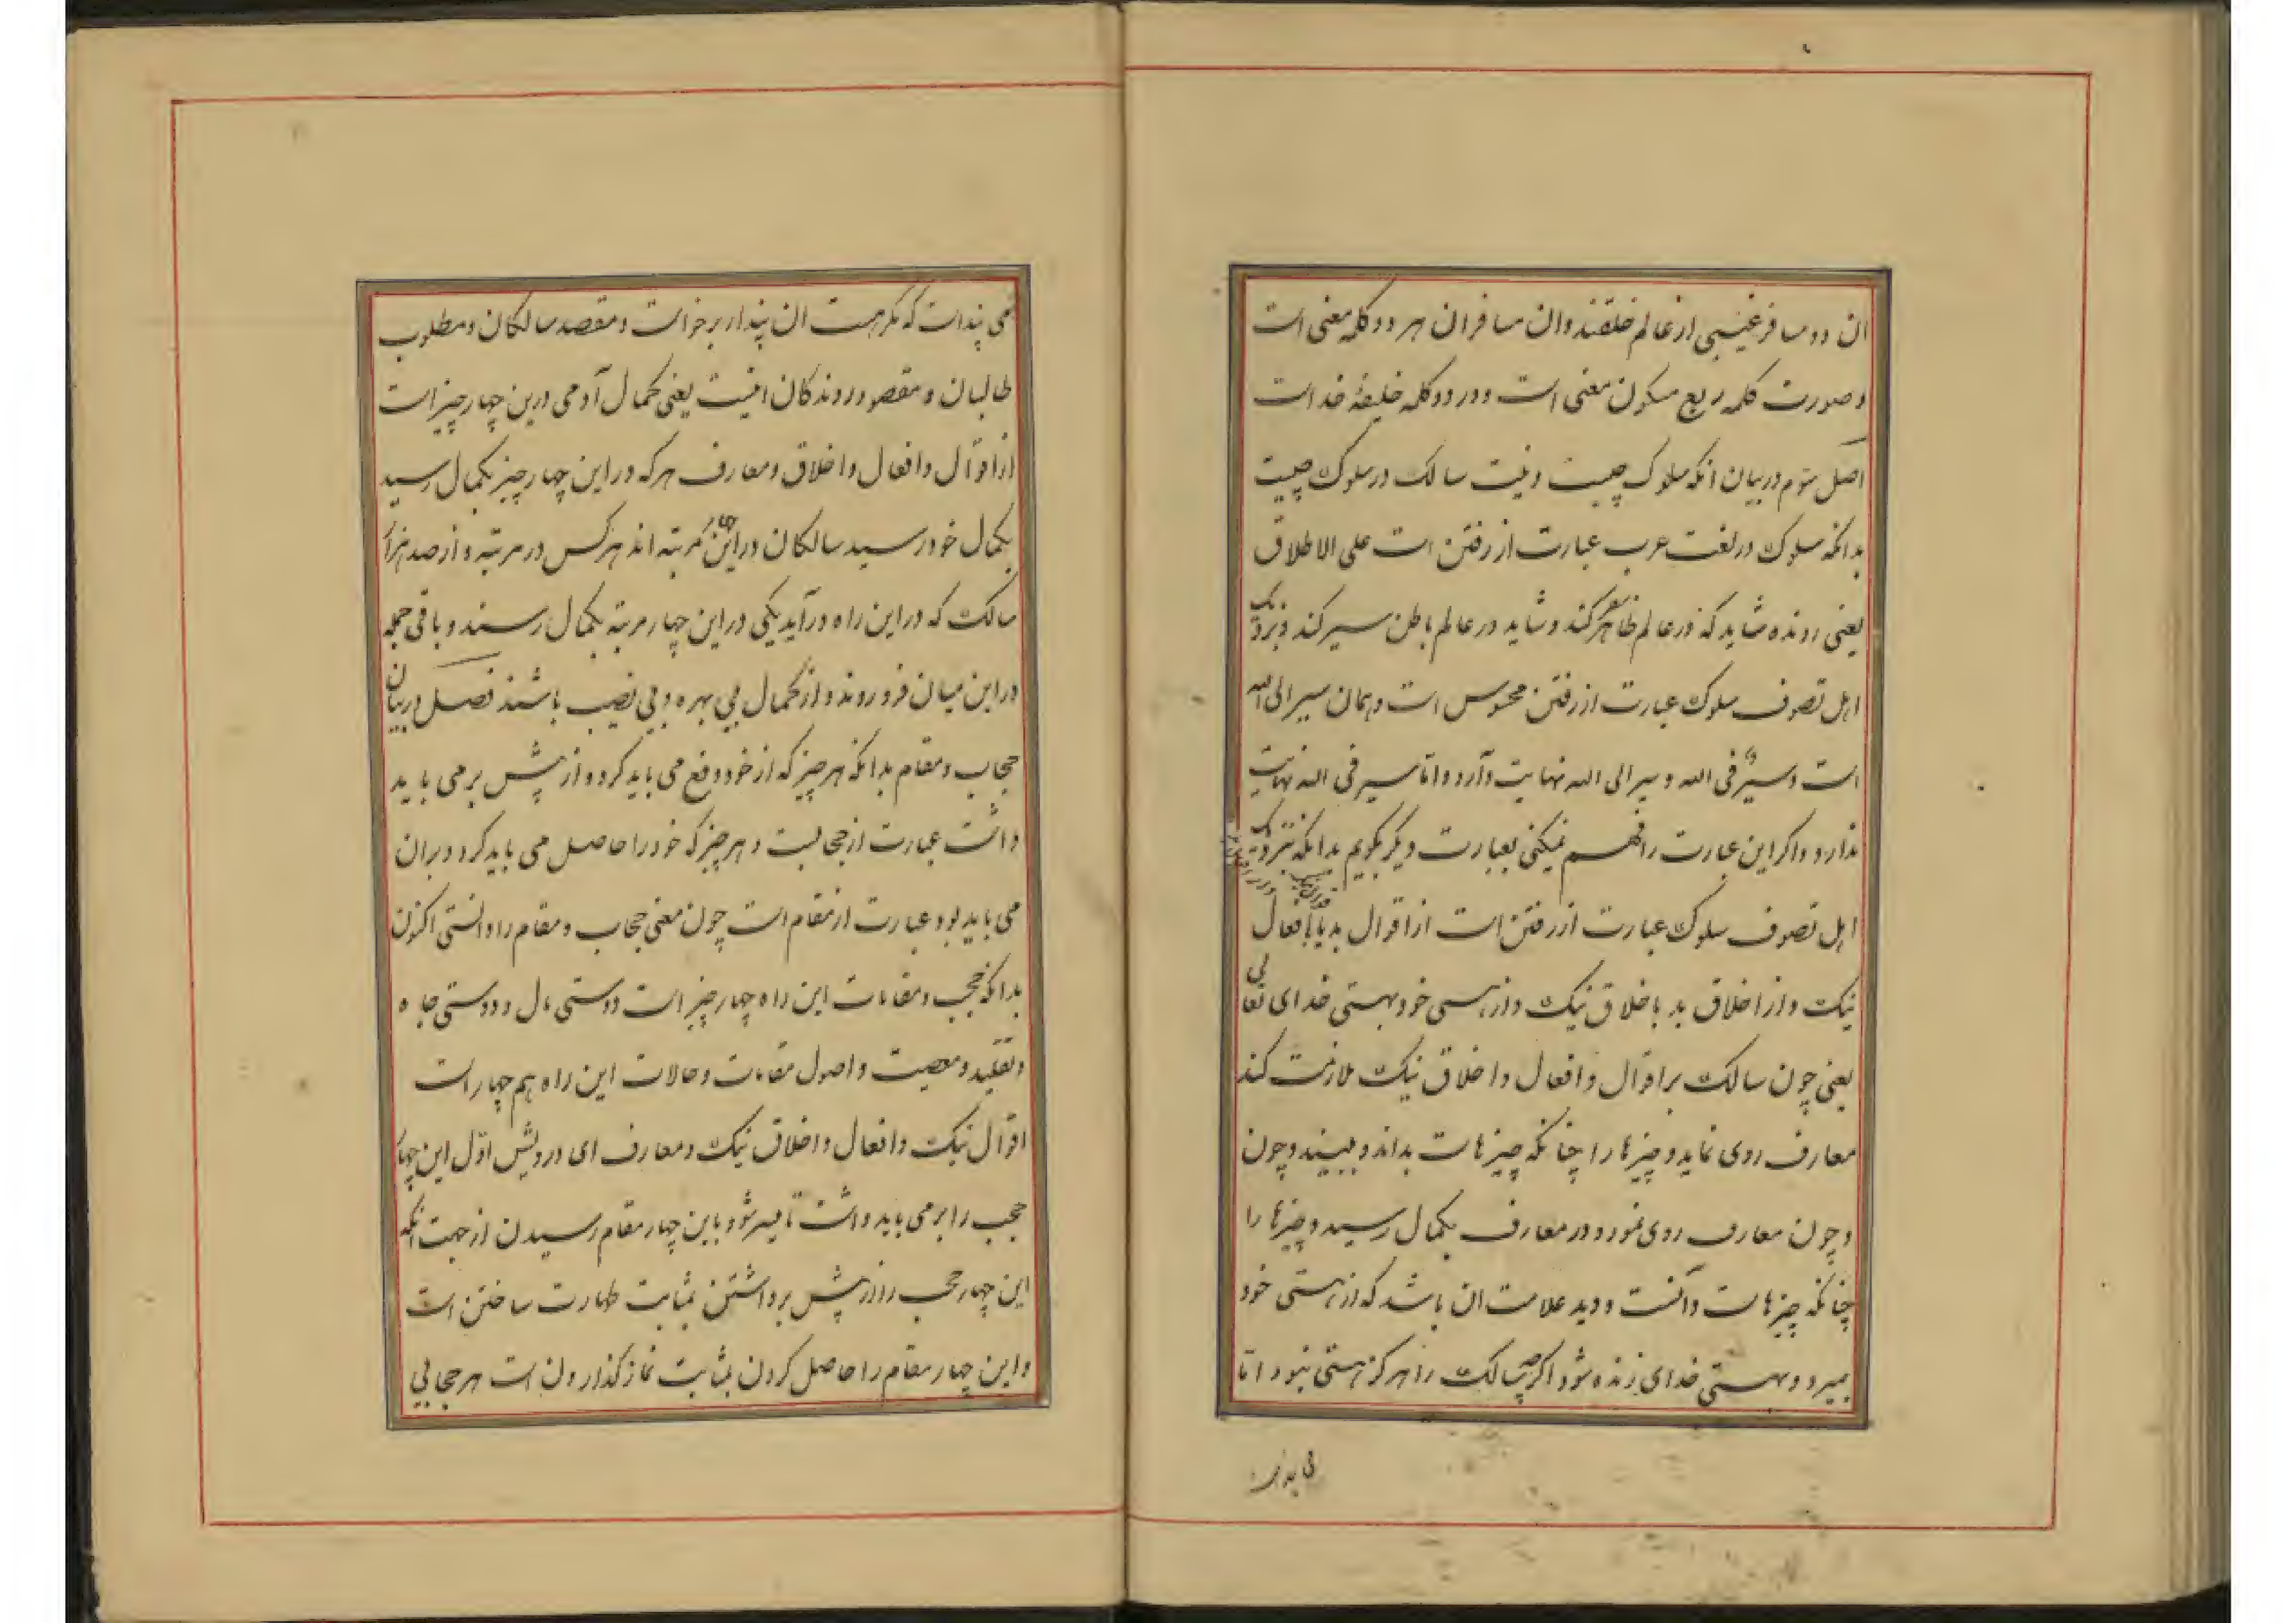 ان دو مسافر غیبی از عالم خلقند وان مسافران هر دو کلمه معنی است
و صورت کلمه ربع مسکون معنی است و در دو کلمه خلیفهٔ خداست
اصل سوم در بیان انکه سلوک چیست و نیت سالک در سلوک چیست
بدانکه سلوک در لغت عرب عبارت از رفتن است علی الاطلاق
یعنی رونده شاید که در عالم ظاهر سفر کند و شاید در عالم باطن سیر کند و بنزدیک
اهل تصوف سلوک عبارت از رفتن محسوس است و همان سیر الی الله
است و سیر فی الله و سیر الی الله نهایت دارد و اما سیر فی الله نهایت
ندارد و اکر این عبارت را فهم نمیکنی بعبارت دیکر بکویم بدانکه بنزدیک
اهل تصوف سلوک عبارت از رفتن است از اقوال بد با افعال
نیک و از اخلاق بد باخلاق نیک و از هستی خود بهستی خدای تعالی
یعنی چون سالک بر اقوال و افعال و اخلاق نیک ملازمت کند
معارف روی نماید و چیزها را چنانکه چیزهاست بداند و ببیند و چون
و چون معارف روی نمود و در معارف بکمال رسید و چیزها را
چنانکه چیزهاست دانست و دید علامت ان باشد که از هستی خود
بمیرد و بهستی خدای زنده شود اکرچه سالک را هرکز هستی نبود اما
می پنداشت که مکر هست ان پندار برخواست و مقصد سالکان و مطلوب
طالبان و مقصود روندکان اینست یعنی کمال آدمی درین چهار چیز است
از اقوال و افعال و اخلاق و معارف هر که در این چهار چیز بکمال رسید
بکمال خود رسید سالکان در این چهار مرتبه اند هر کس در مرتبه و از صد هزار
سالک که در این راه درآید یکی در این چهار مرتبه بکمال رسند و باقی جمله
در این میان فرو روند و از کمال بی بهره و بی نصیب باشند فصل در بیان
حجاب و مقام بدانکه هر چیز که از خود دفع می باید کرد و از پیش بر می باید
داشت عبارت از حجابست و هر چیز که خود را حاصل می باید کرد و بران
می باید بود عبارت از مقام است چون معنی حجاب و مقام را دانستی اکنون
بدانکه حجب و مقامات این راه چهار چیز است دوستی مال و دوستی جاه
و تقلید و معصیت و اصول مقامات و حالات این راه هم چهار است
اقوال نیک و افعال و اخلاق نیک و معارف ای درویش اول این چهار
حجب را بر می باید داشت تا میسر شود باین چهار مقام رسیدن از جهت انکه
این چهار حجب را از پیش برداشتن بمثابت طهارت ساختن است
و این چهار مقام را حاصل کردن بمثابت نماز کذاردن است هر حجابی